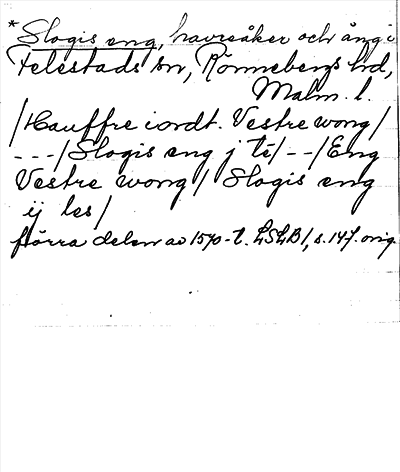 * Slogis eng, havreåker och äng i
Felestads sn, Rönnebergs hd,
Malm. l.
/Hauffre iordt. Vestre wong/
---/Slogis eng j te/--/Eng
Vestre wong/ Slogis eng
ij les/
förra delen av 1570-t. LSLB 1, s. 147. orig.